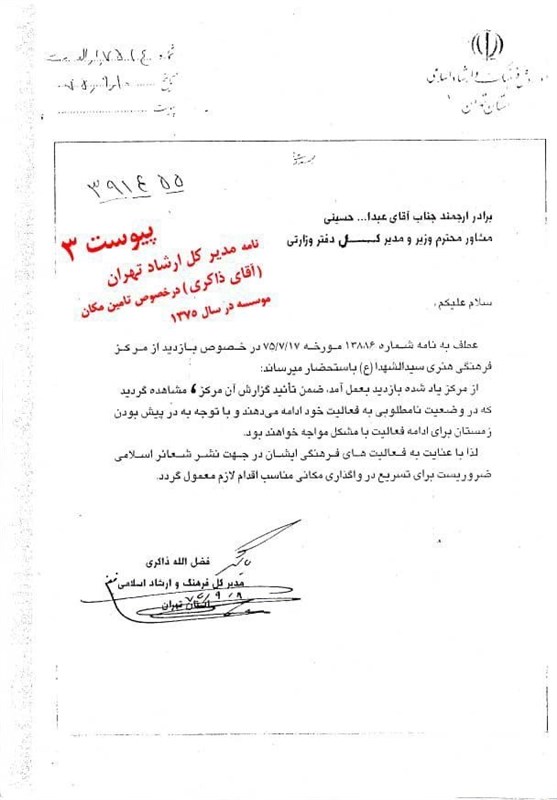 اداره کل فرهنگ و ارشاد اسلامی
استان تهران
شماره
تاریخ
پیوست
۳۹۱۴۵۵
پیوست ۳
نامه مدیر کل ارشاد تهران
(آقای ذاکری) درخصوص تامین مکان
موسسه در سال ۱۳۷۵
برادر ارجمند جناب آقای عبدا... حسینی
مشاور محترم وزیر و مدیر کــل دفتر وزارتی
سلام علیکم،
عطف به نامه شماره ۱۳۸۸۶ مورخه ۷۵/۷/۱۷ در خصوص بازدید از مرکز
فرهنگی هنری سیدالشهدا (ع) باستحضار میرساند:
از مرکز یاد شده بازدید بعمل آمد، ضمن تأئید گزارش آن مرکز، مشاهده گردید
که در وضعیت نامطلوبی به فعالیت خود ادامه می‌دهند و با توجه به در پیش بودن
زمستان برای ادامه فعالیت با مشکل مواجه خواهند بود.
لذا با عنایت به فعالیت های فرهنگی ایشان در جهت نشر شعائر اسلامی
ضروریست برای تسریع در واگذاری مکانی مناسب اقدام لازم معمول گردد.
فضل الله ذاکری
مدیر کل فرهنگ و ارشاد اسلامی
استان تهران